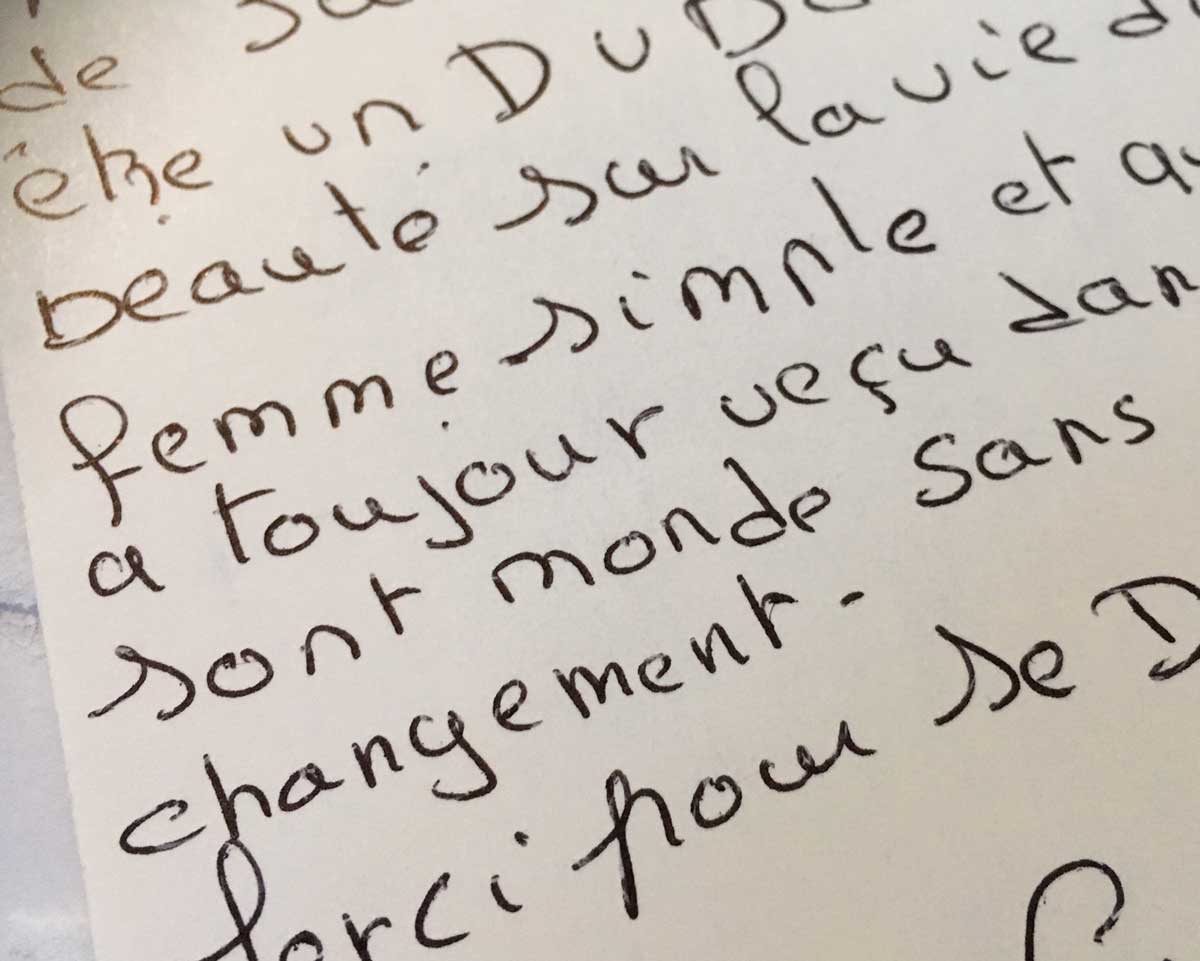 de
être un DUD
beauté sur la vie d
femme simple et qu
a toujour veçu dan
sont monde sans
changement.
pour se D